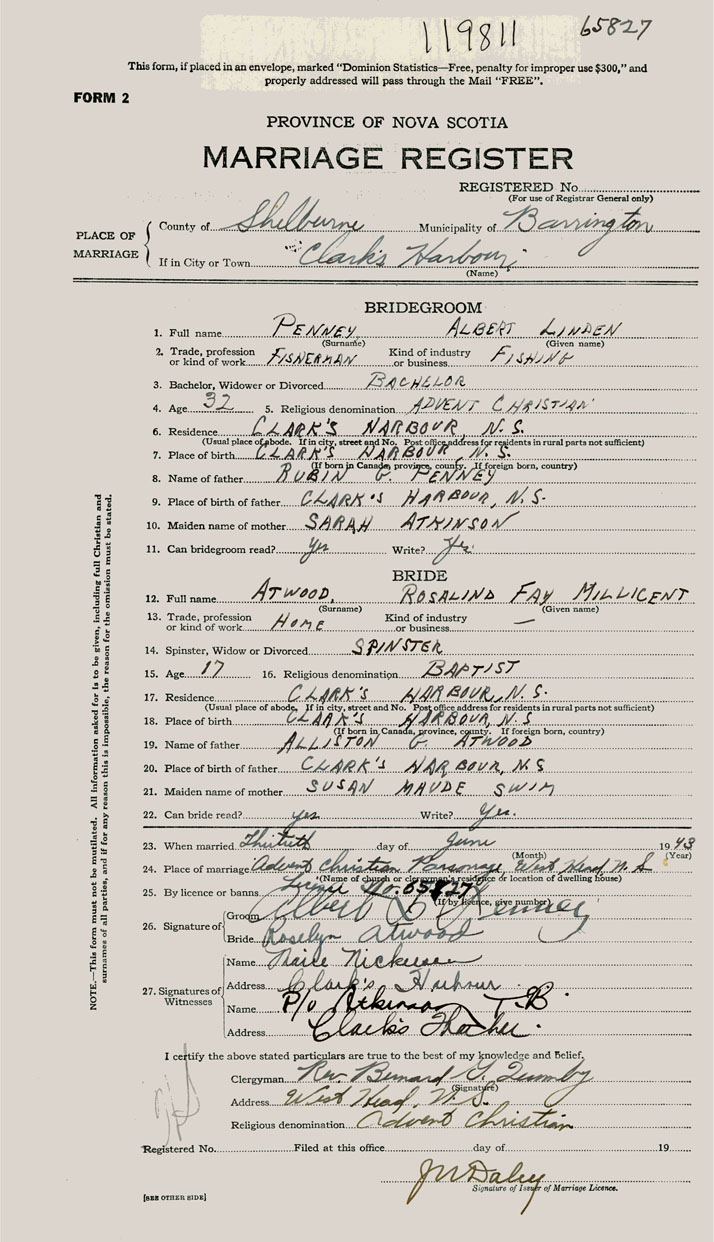 119811 65827
This form, if placed in an envelope, marked "Dominion Statistics—Free, penalty for improper use $300," and
properly addressed will pass through the Mail "FREE".
FORM 2
PROVINCE OF NOVA SCOTIA
MARRIAGE REGISTER
REGISTERED No.
(For use of Registrar General only)
PLACE OF MARRIAGE
County of Shelburne Municipality of Barrington
If in City or Town Clark's Harbour
(Name)
BRIDEGROOM
1. Full name PENNEY, ALBERT LINDEN
(Surname) (Given name)
2. Trade, profession or kind of work FISHERMAN Kind of industry or business FISHING
3. Bachelor, Widower or Divorced BACHELOR
4. Age 32 5. Religious denomination ADVENT CHRISTIAN
6. Residence CLARK'S HARBOUR, N.S.
(Usual place of abode. If in city, street and No. Post office address for residents in rural parts not sufficient)
7. Place of birth CLARK'S HARBOUR, N.S.
(If born in Canada, province, county. If foreign born, country)
8. Name of father RUBIN G. PENNEY
9. Place of birth of father CLARK'S HARBOUR, N.S.
10. Maiden name of mother SARAH ATKINSON
11. Can bridegroom read? Yes Write? Yes
BRIDE
12. Full name ATWOOD, ROSALIND FAY MILLICENT
(Surname) (Given name)
13. Trade, profession or kind of work HOME Kind of industry or business —
14. Spinster, Widow or Divorced SPINSTER
15. Age 17 16. Religious denomination BAPTIST
17. Residence CLARK'S HARBOUR, N.S.
(Usual place of abode. If in city, street and No. Post office address for residents in rural parts not sufficient)
18. Place of birth CLARK'S HARBOUR, N.S
(If born in Canada, province, county. If foreign born, country)
19. Name of father ALLISTON G. ATWOOD
20. Place of birth of father CLARK'S HARBOUR, N.S
21. Maiden name of mother SUSAN MAUDE SWIM
22. Can bride read? yes Write? Yes.
23. When married Thirtieth day of June 1943
(Month) (Year)
24. Place of marriage Advent Christian Parsonage West Head N. S
(Name of church or clergyman's residence or location of dwelling house)
25. By licence or banns License No. 65827
(If by licence, give number)
26. Signature of
Groom Albert L Penney
Bride Roselyn Atwood
27. Signatures of Witnesses
Name Nickerson
Address Clark's Harbour
Name P/o Atkinson T.B.
Address Clark's
I certify the above stated particulars are true to the best of my knowledge and belief.
Clergyman Rev. Bernard G. Quimby
(Signature)
Address West Head, N.S.
Religious denomination Advent Christian
Registered No. Filed at this office day of 19
J W Daley
Signature of Issuer of Marriage Licence.
[SEE OTHER SIDE]
NOTE.—This form must not be mutilated. All information asked for is to be given, including full Christian and
surnames of all parties, and if for any reason this is impossible, the reason for the omission must be stated.